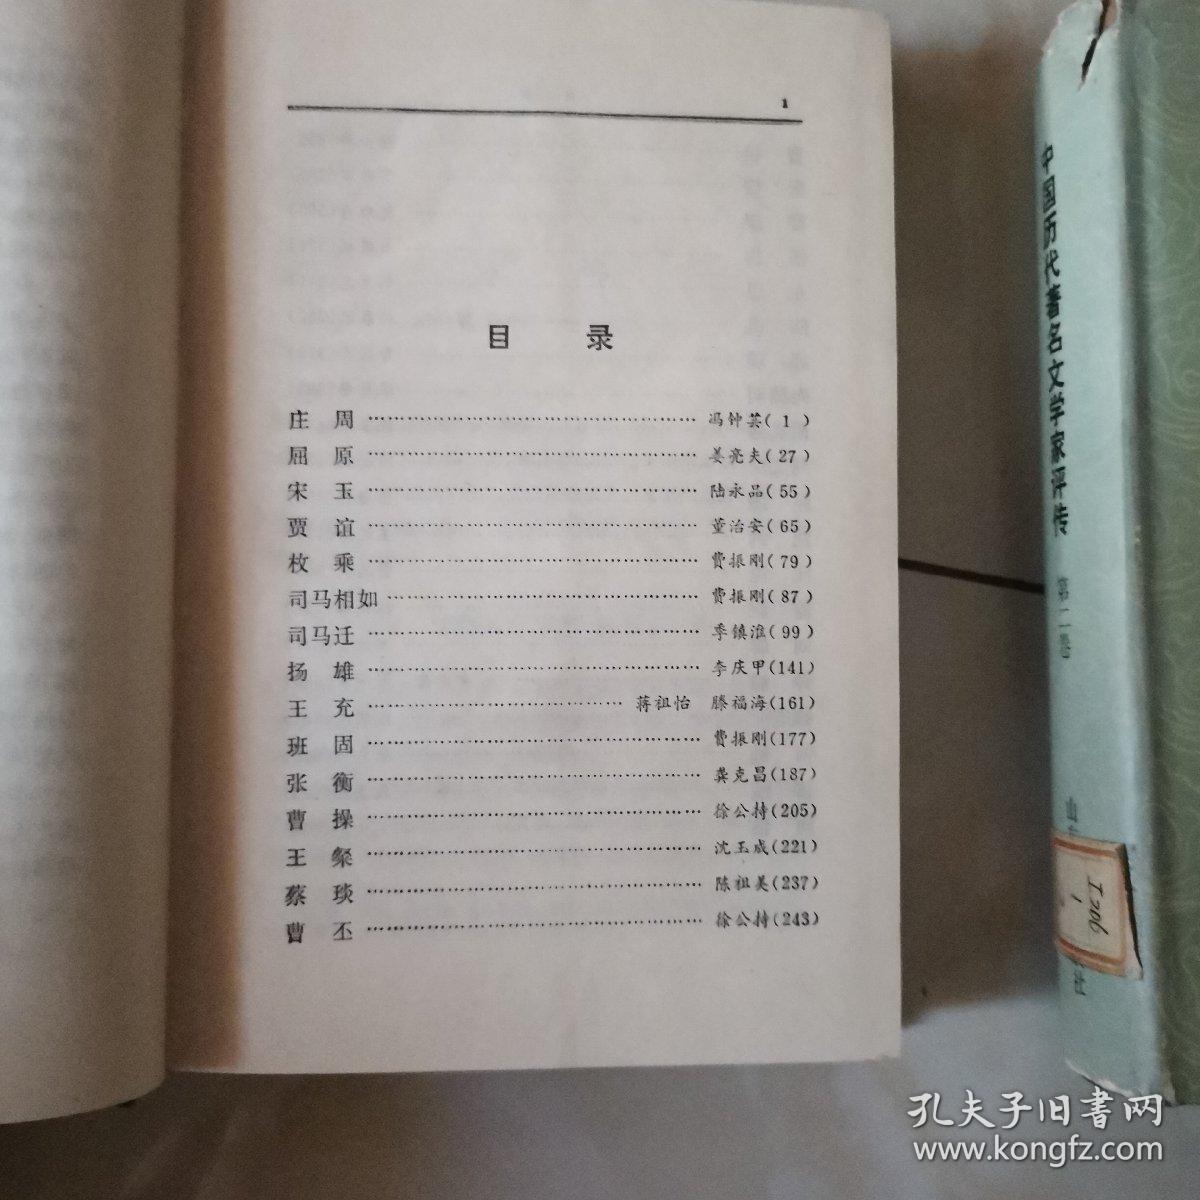 1
目 录
庄 周 …… 冯钟芸( 1 )
屈 原 …… 姜亮夫( 27 )
宋 玉 …… 陆永品( 55 )
贾 谊 …… 董治安( 65 )
枚 乘 …… 费振刚( 79 )
司马相如 …… 费振刚( 87 )
司马迁 …… 季镇淮( 99 )
扬 雄 …… 李庆甲(141)
王 充 …… 蒋祖怡 滕福海(161)
班 固 …… 费振刚(177)
张 衡 …… 龚克昌(187)
曹 操 …… 徐公持(205)
王 粲 …… 沈玉成(221)
蔡 琰 …… 陈祖美(237)
曹 丕 …… 徐公持(243)
中国历代著名文学家评传 第二卷
山
社
I206
1
孔夫子旧書网
www.kongfz.com